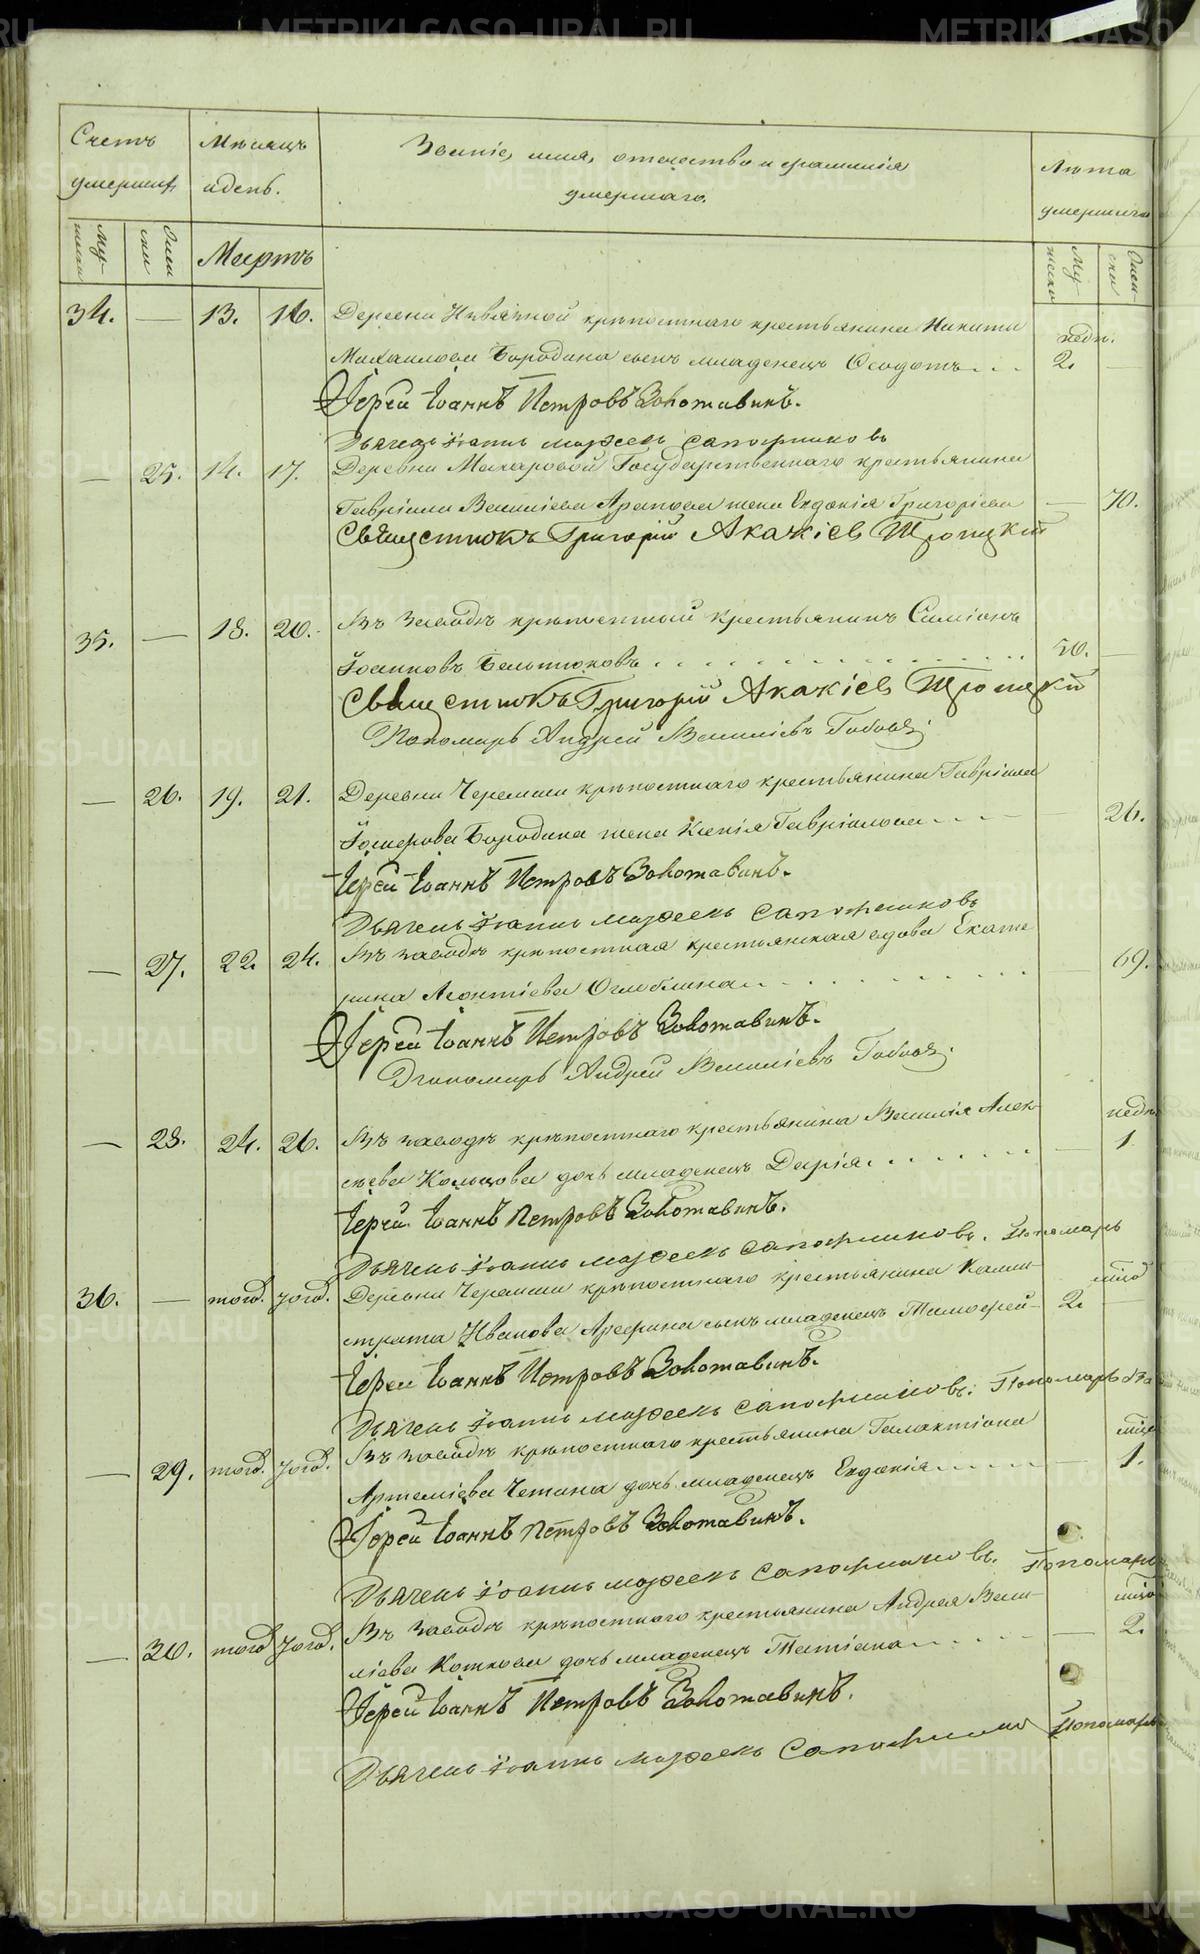 METRIKI.GASO-URAL.RU
Счетъ умершихъ
Мѣсяцъ и день.
Званіе, имя, отечество и фамилія
умершаго.
Лѣта умершаго
Мужеска
Женска
Мартъ
Мужеска
Женска
34. — 13. 16. Деревни крѣпостнаго крестьянина Никиты
недѣ.
Михаилова Бородина сынъ младенецъ Ѳеодотъ... 2. —
Іерей Іоаннъ Петровъ Золотавинъ.
Дьячекъ Іоаннъ Сапожниковъ
— 25. 14. 17. Деревни Макаровой Государственнаго крестьянина
Гавріила Василіева жена Евдокія Григоріева — 70.
Священникъ Григорій Акакіевъ Троицкій
35. — 18. 20. Въ Заводѣ крѣпостный крестьянинъ Симіонъ
Іоанновъ Бельтюковъ. . . . 50. —
Священникъ Григорій Акакіевъ Троицкій
Пономарь Андрей Василіевъ
— 26. 19. 21. Деревни Черемши крѣпостнаго крестьянина Гавріила
Іосифова Бородина жена Ксенія Гавріилова — 26.
Іерей Іоаннъ Петровъ Золотавинъ.
Дьячекъ Іоаннъ Сапожниковъ
— 27. 22. 24. Въ заводѣ крѣпостная крестьянская вдова Екате
рина Леонтіева Оглоблина — 69.
Іерей Іоаннъ Петровъ Золотавинъ.
Пономарь Андрей Василіевъ
— 28. 24. 26. Въ заводѣ крѣпостнаго крестьянина Василія Алек-
недѣ.
сѣева Кольцова дочь младенецъ Дарія. . . . — 1.
Іерей Іоаннъ Петровъ Золотавинъ.
Дьячекъ Іоаннъ Сапожниковъ. Пономарь
36. — тогож. тогож. Деревни Черемши крѣпостнаго крестьянина Калли-
страта Иванова Арефина сынъ младенецъ Тимофей- 2. —
Іерей Іоаннъ Петровъ Золотавинъ.
Дьячекъ Іоаннъ Сапожниковъ. Пономарь
— 29. тогож. тогож. Въ заводѣ крѣпостнаго крестьянина Галактіона
Артеміева Четина дочь младенецъ Евдокія — 1.
Іерей Іоаннъ Петровъ Золотавинъ.
Дьячекъ Іоаннъ Сапожниковъ. Пономарь
— 30. тогож тогож. Въ Заводѣ крѣпостнаго крестьянина Андрея Васи-
ліева Коткова дочь младенецъ Татіана — 2.
Іерей Іоаннъ Петровъ Золотавинъ.
Дьячекъ Іоаннъ Пономарь